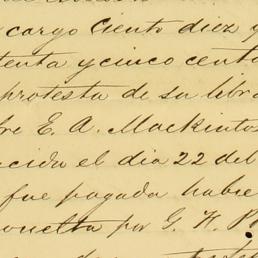 cargo Ciento diez y
tenta y cinco cent
protesta de su libra
re E. A. Mackintos
cida el dia 22 del
fue pagada habie
vuelta por G. H. P